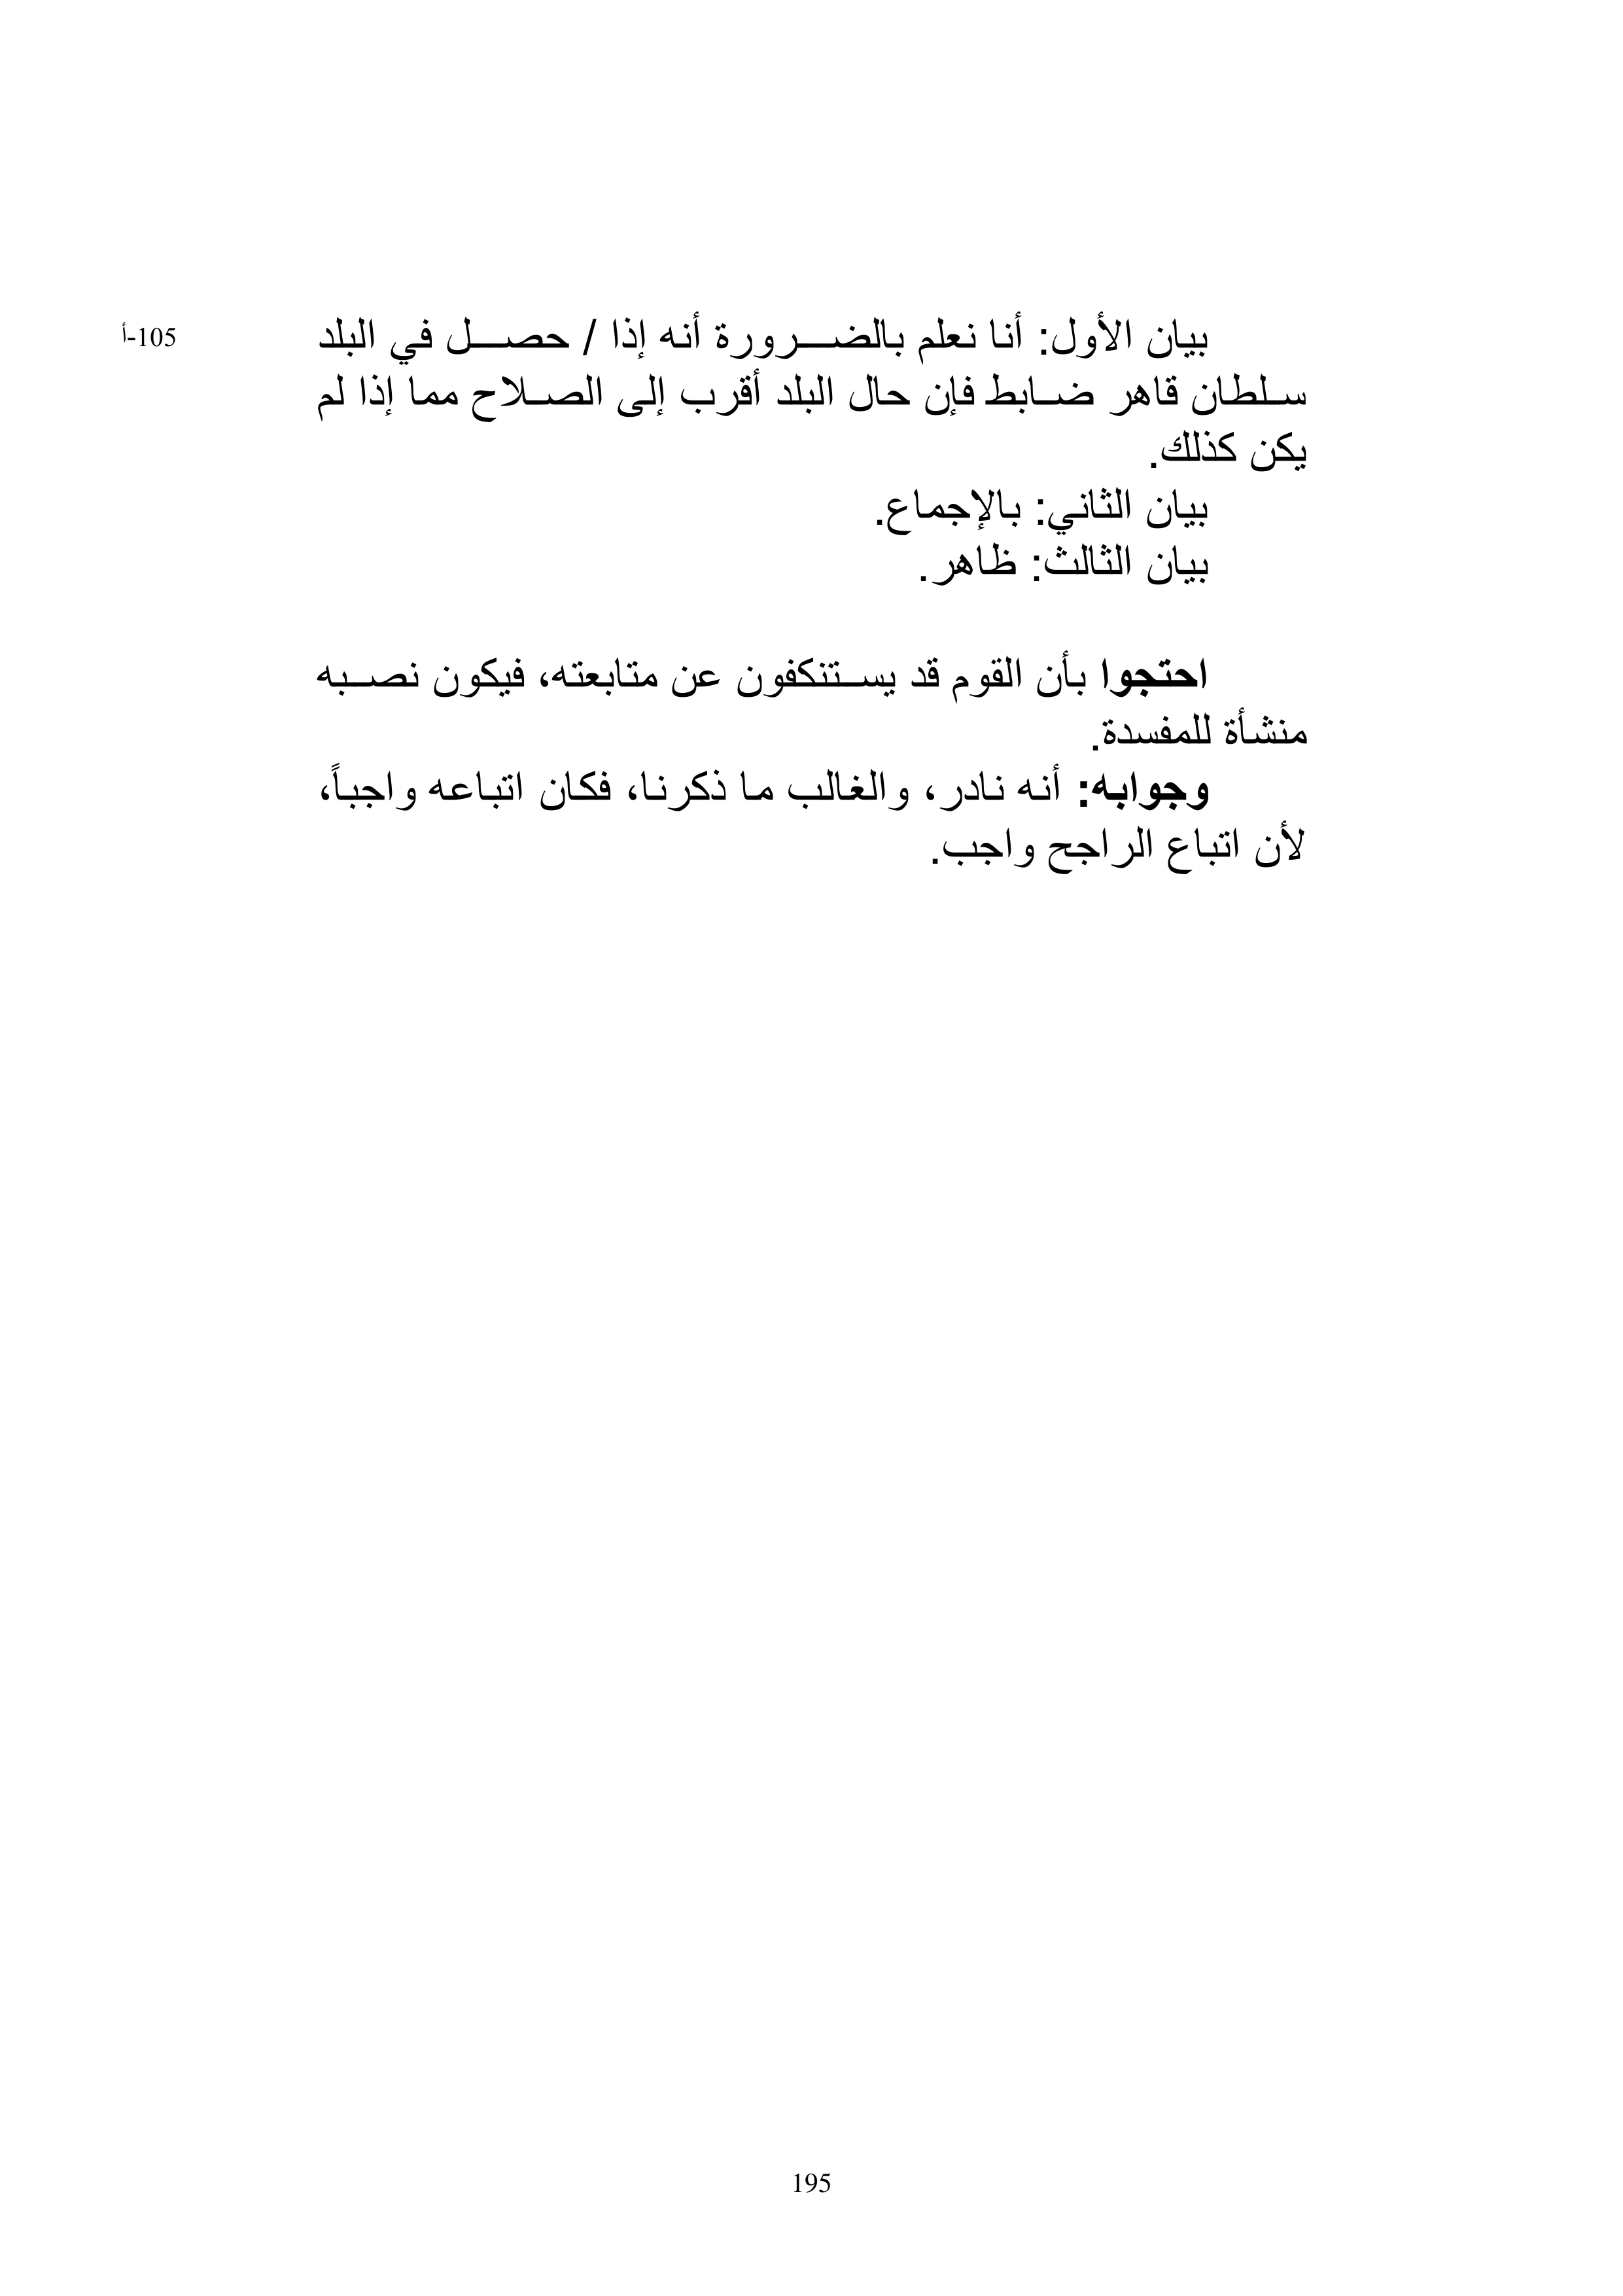 بيان الأول: أنا نعلم بالضرورة أنه إذا / حصل في البلد
105-أ
سلطان قاهر ضابط فإن حال البلد أقرب إلى الصلاح مما إذا لم
يكن كذلك.
بيان الثاني: بالإجماع.
بيان الثالث: ظاهر.
احتجوا بأن القوم قد يستنكفون عن متابعته، فيكون نصبه
منشأة للمفسدة.
وجوابه: أنه نادر، والغالب ما ذكرنا، فكان اتباعه واجباً،
لأن اتباع الراجح واجب.
195